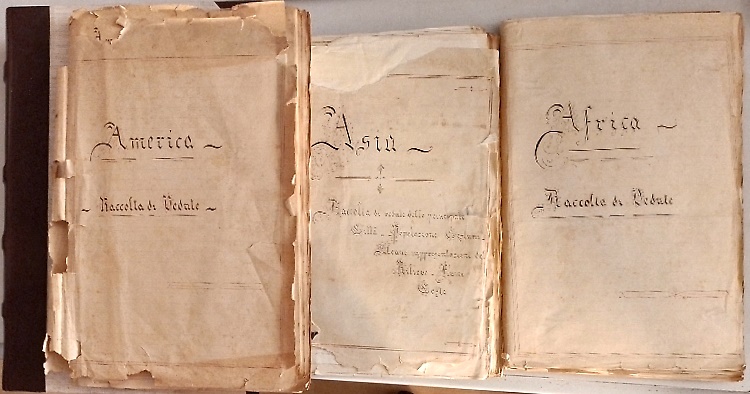 America
Raccolta di Vedute
Asia
Raccolta di vedute delle principali
Città - Popolazione
Alcune rappresentazioni de
Rilievo - Fiumi
Coste
Africa
Raccolta di Vedute